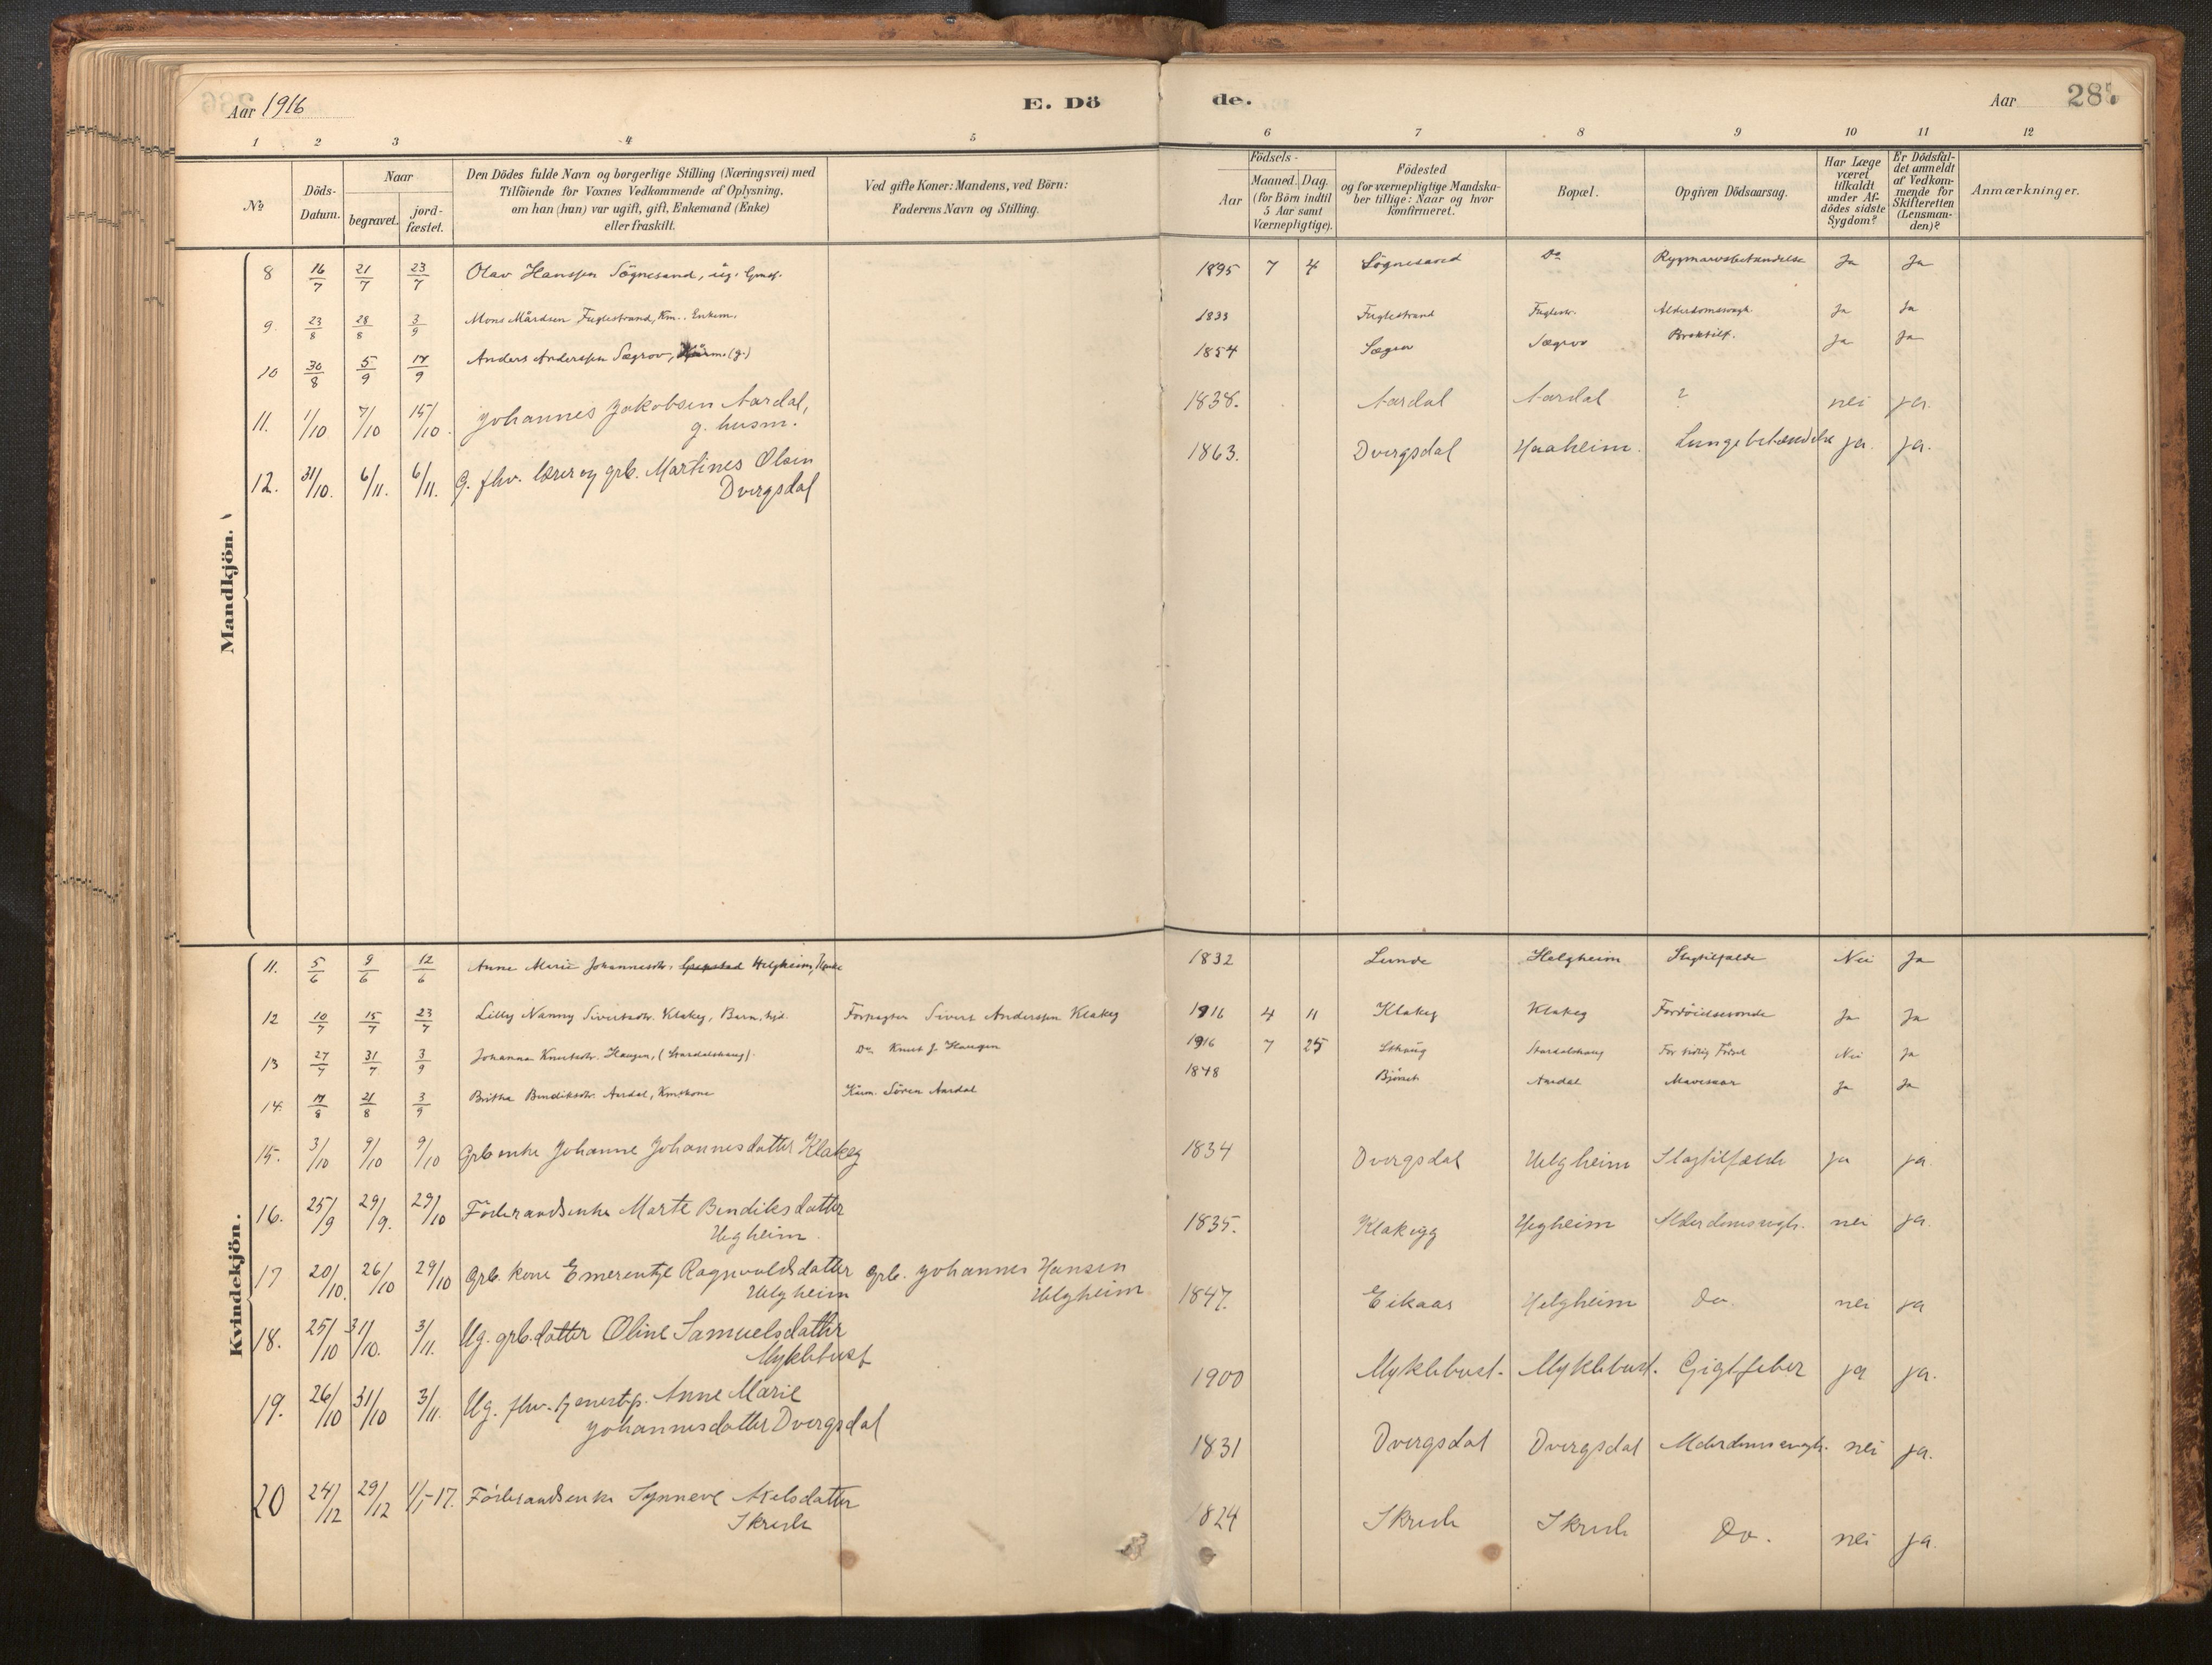 Aar 1916
E. Dö
de.
Aar
285
1 2 3 4 5 6 7 8 9 10 11 12
№
Döds-
Datum.
Naar
begravet.
jord-
fæstet.
Den Dödes fulde Navn og borgerlige Stilling (Næringsvei) med
Tilföiende for Voxnes Vedkommende af Oplysning,
om han (hun) var ugift, gift, Enkemand (Enke)
eller fraskilt.
Ved gifte Koner: Mandens, ved Börn:
Faderens Navn og Stilling.
Födsels-
Aar
Maaned. Dag.
(for Börn indtil
5 Aar samt
Værnepligtige).
Födested
og for værnepligtige Mandska-
ber tillige: Naar og hvor
konfirmeret.
Bopæl.
Opgiven Dödsaarsag.
Har Læge
været
tilkaldt
under Af-
dödes sidste
Sygdom?
Er Dödsfal-
det anmeldt
af Vedkom-
mende for
Skifteretten
(Lensman-
den)?
Anmærkninger.
Mandkjön.
8 16/7 21/7 23/7 Olav Hanssen Sögnesand, ug. 1895 7 4 Sögnesand Do Rygmarvsbetændelse Ja Ja
9. 23/8 28/8 3/9 Mons Mårdsen Fuglestrand, Km. Enkem. 1833 Fuglestrand Fuglestr. Alderdomssvagh. Ja Ja
10 30/8 5/9 17/9 Anders Anderssen Sægrov, (g.) 1854 Sægrov Sægrov Ja Ja
11. 1/10 7/10 15/10. Johannes Jakobsen Aardal, 1838. Aardal Aardal ? nei ja.
g. husm.
12. 31/10. 6/11. 6/11. G. fhv. lærer og grb. Martines Olsen 1863. Dvergsdal Haaheim. Lungebetændelse ja. ja.
Dvergsdal
Kvindekjön.
11. 5/6 9/6 12/6 Anne Marie Johannesdtr. Helgheim, 1832 Lunde Helgheim Slagtilfælde Nei Ja
12 10/7 15/7 23/7 Lilly Nanny Sivertsdtr. Klakeg, Barn, hjd. Forpagter Sivert Anderssen Klakeg 1916 4 11 Klakeg Klakeg Fordöielsesonde Ja Ja
13 27/7 31/7 3/9 Johanna Knutsdtr. Haugen, (Stardalshaug). Do Knut J. Haugen 1916 7 25 Sthaug Stardalshaug For tidlig Fødsel Nei Ja
14. 17/8 21/8 3/9 Britha Bendiksdtr. Aardal, Kmskone Kam. Sören Aardal 1848 Bjönset Aardal Mavesaar Ja Ja
15. 3/10 9/10 9/10 Grb enke Johanne Johannesdatter Klakeg 1834 Dvergsdal Helgheim Slagtilfælde ja ja.
16. 25/9 29/9. 29/10 Föderaadsenke Marte Bendiksdatter 1835. Klakegg Helgheim Alderdomssvagh. nei ja.
Helgheim.
17 20/10. 26/10 29/10 Grb. kone Emerentze Ragnvaldsdatter grb. Johannes Hansen 1847. Eikaas Helgheim do. nei ja
Helgheim Helgheim
18. 25/10 31/10. 3/11. Ug. grb.datter Oline Samuelsdatter 1900 Myklebust. Myklebust. Gigtfeber ja ja.
Myklebust
19. 26/10 31/10 3/11. Ug. fhv. tjenestp. Anne Marie 1831 Dvergsdal Dvergsdal Alderdomssvagh. nei ja.
Johannesdatter Dvergsdal
20 24/12 29/12 1/1-17. Föderaadsenke Synneve Axelsdatter 1824 Skrede Skrede Do. nei ja.
Skrede